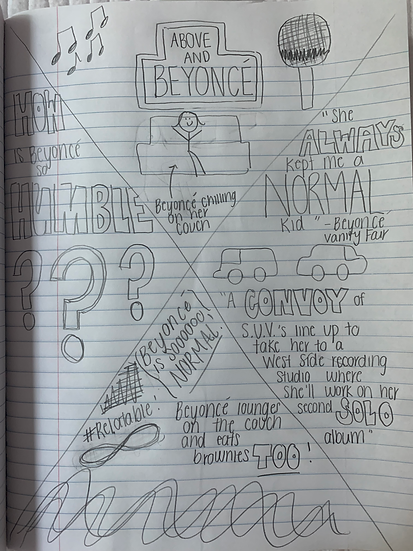 ABOVE
AND
BEYONCÉ
HOW
is Beyoncé
so
HUMBLE
? ? ?
Beyoncé chilling
on her
couch
"She
ALWAYS
kept me a
NORMAL
kid" -Beyoncé
vanity Fair
"A CONVOY of
S.U.V.'s line up to
take her to a
West Side recording
studio where
she'll work on her
second SOLO
album"
Beyoncé
is sooooo
NORMAL.
#Relatable!
Beyoncé lounger
on the couch
and eats
brownies TOO!